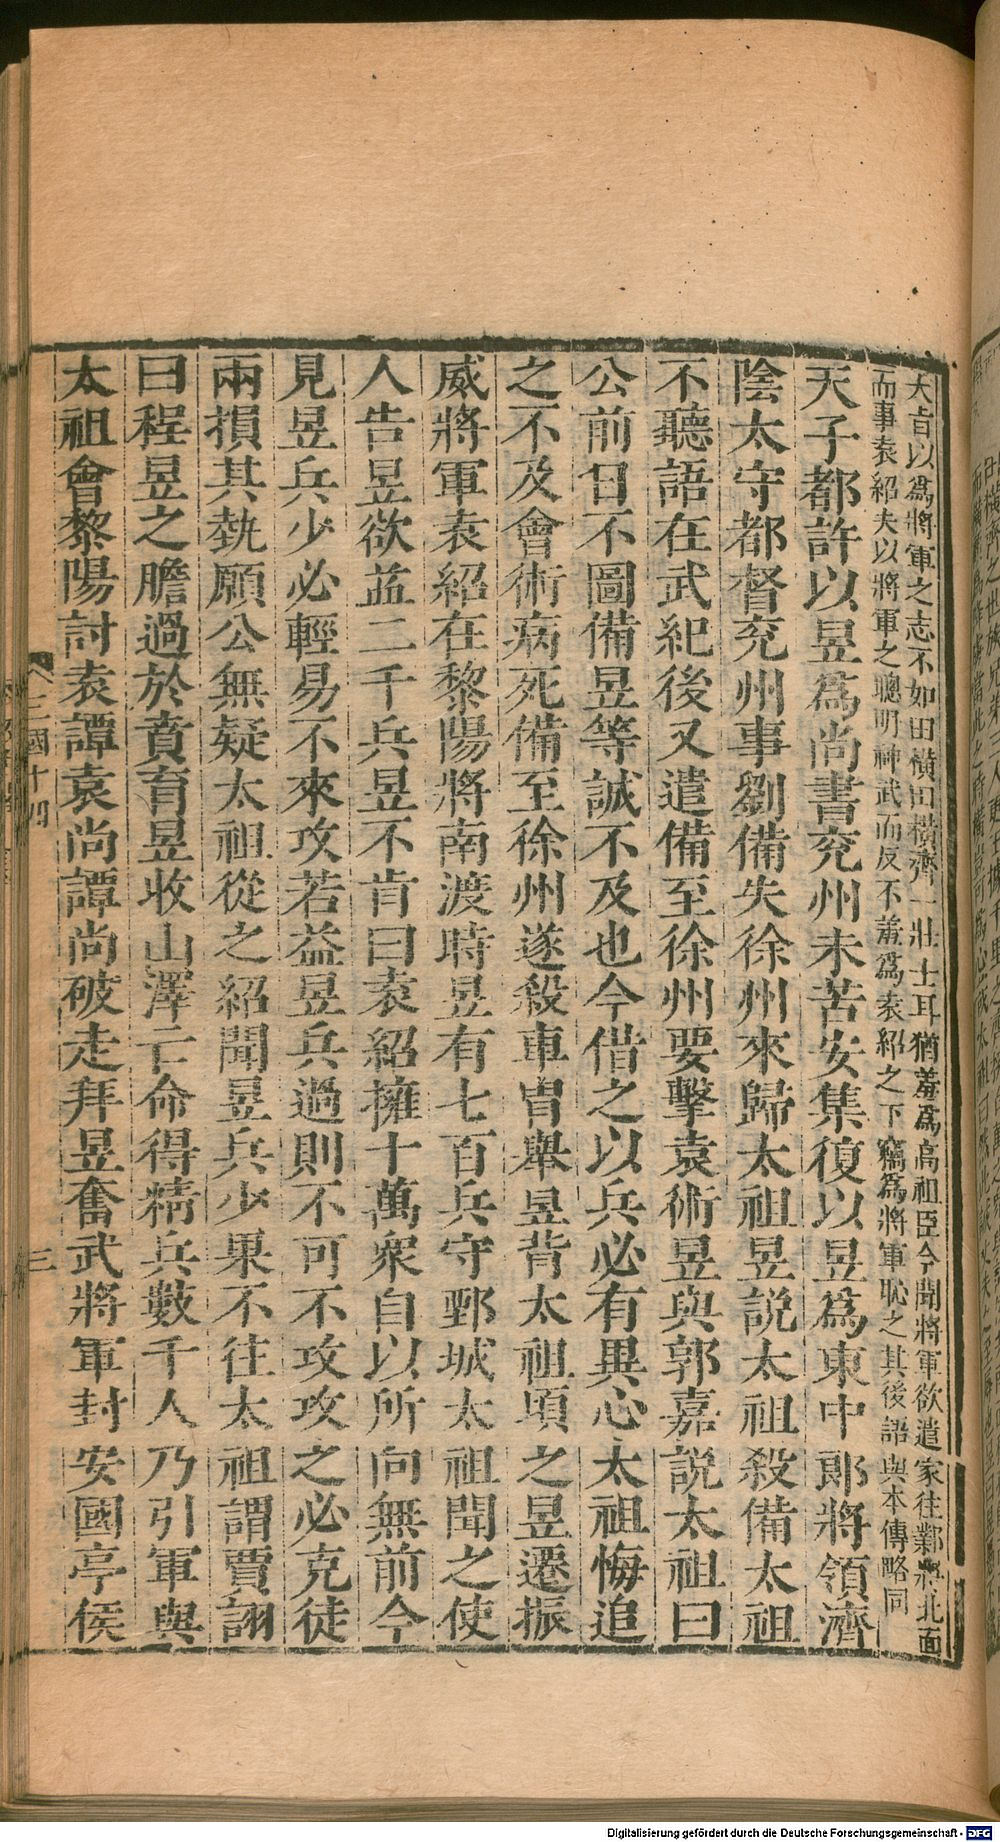 大旨以爲將軍之志不如田橫田橫齊一壯士耳猶羞爲高祖臣今聞將軍欲遣家往鄴將北面
而事袁紹夫以將軍之聰明神武而反不羞爲袁紹之下竊爲將軍恥之其後語與本傳略同
天子都許以昱爲尚書兖州未苦安集復以昱爲東中郎將領濟
陰太守都督兖州事劉備失徐州來歸太祖昱説太祖殺備太祖
不聽語在武紀後又遣備至徐州要擊袁術昱與郭嘉説太祖曰
公前日不圖備昱等誠不及也今借之以兵必有異心太祖悔追
之不及會術病死備至徐州遂殺車冑舉昱背太祖頃之昱遷振
威將軍袁紹在黎陽將南渡時昱有七百兵守鄄城太祖聞之使
人告昱欲益二千兵昱不肯曰袁紹擁十萬衆自以所向無前今
見昱兵少必輕易不來攻若益昱兵過則不可不攻攻之必克徒
兩損其埶願公無疑太祖從之紹聞昱兵少果不往太祖謂賈詡
曰程昱之膽過於賁育昱收山澤亡命得精兵數千人乃引軍與
太祖會黎陽討袁譚袁尚譚尚破走拜昱奮武將軍封安國亭侯
三國十四
三
Digitalisierung gefördert durch die Deutsche Forschungsgemeinschaft - DFG